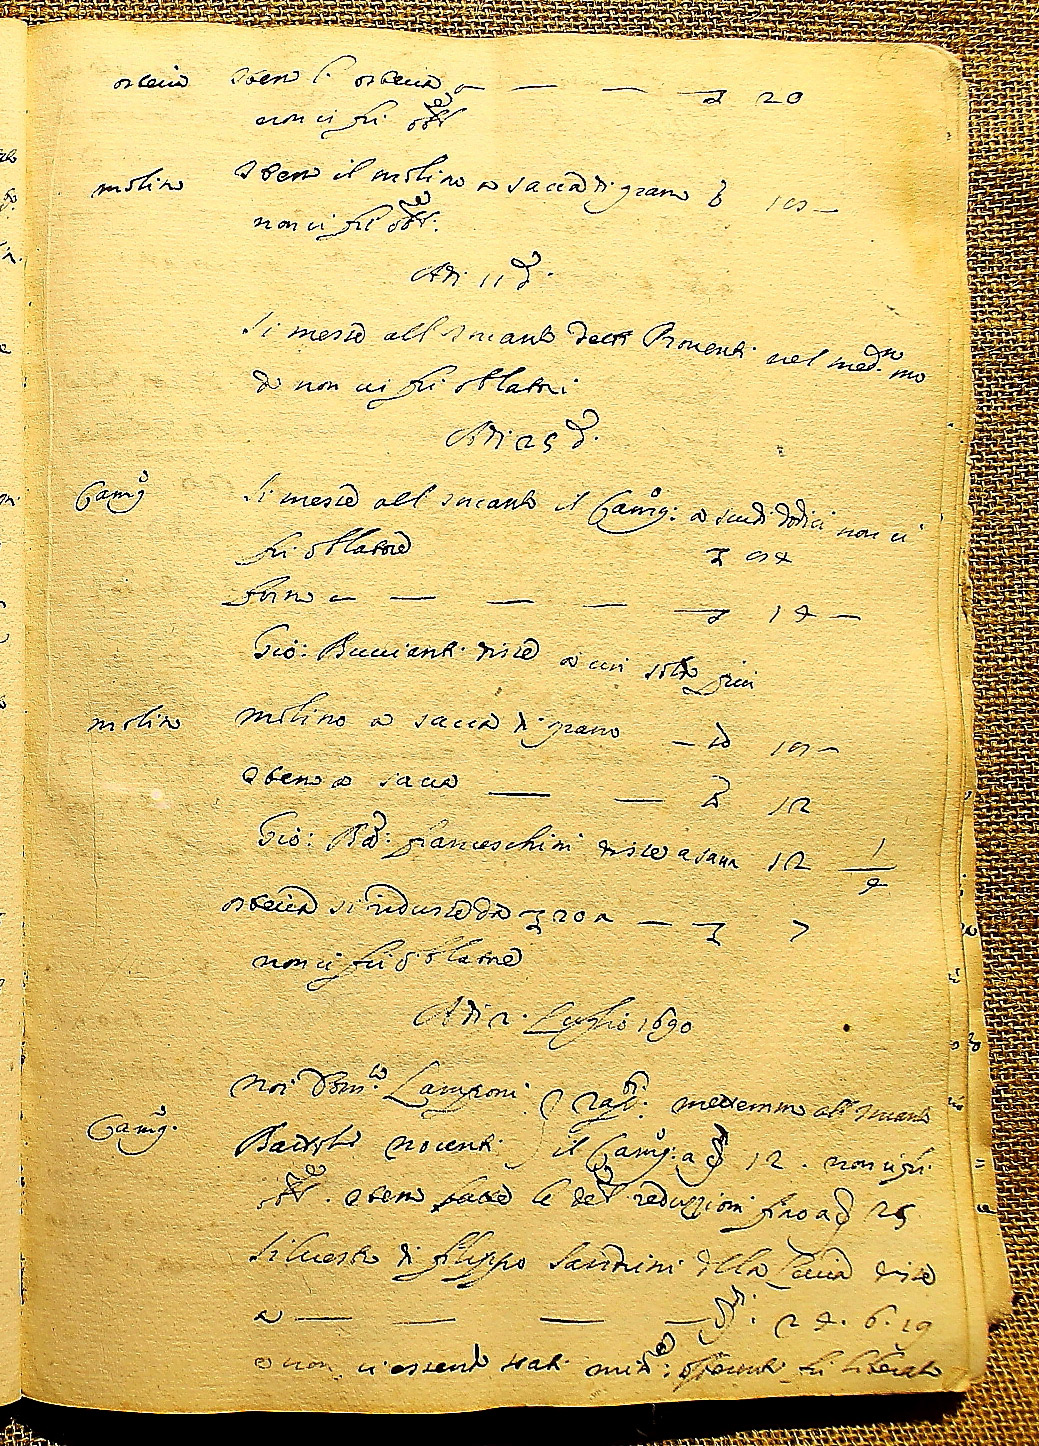 osteria Item l'osteria a — — — 20
non ci fu obl.re
molino Item il molino a sacca di grano 10 —
non ci fu obl.re
Adi 11 d.o
Si messe all'incanto detti Proventi nel med.mo mo
do non ci fu oblatori
Adi 25 d.o
Cam.o Si messe all'incanto il Cam.o: a scudi dodici non ci
fu oblatore
forno a — — — — 14 —
Gio: Buccianti disse a cui
molino molino a sacca di grano —
Item a sacca — — 12
Gio: Ba.: franceschini disse a sacca 12 1/2
osteria si ridusse da 20 a — 7
non ci fu oblatore
Adi 2. Luglio 1690
noi Dom.co Lamponi mettemmo all'incanto
Cam.o. Batista nocenti il Cam.o: a 12. non ci fu
obl.re. Item le dette reduzzioni fino a 25
Silvestro di filippo Santini della disse
a — — — — 24. 6. 19
e non ci essendo stati offerenti fu liberato